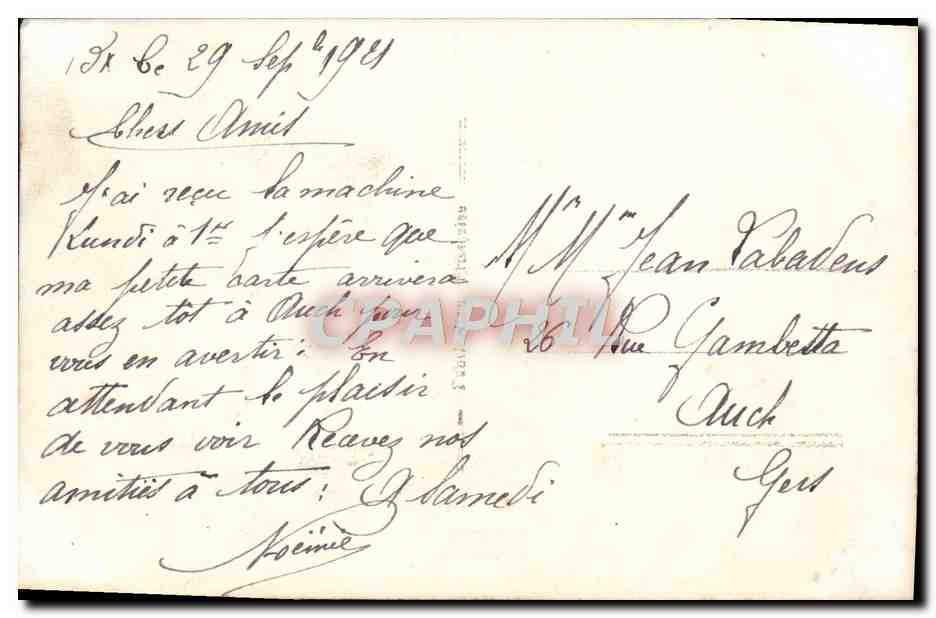 Bx le 29 Sepbre 1921
Chers Amis
J'ai reçu la machine
Lundi à 1re j'espère que
ma petite carte arrivera
assez tôt à Auch pour
vous en avertir: En
attendant le plaisir
de vous voir Recevez nos
amitiés à tous: A Samedi
Noëmie
Mr Mme Jean Labadens
26 Rue Gambetta
Auch
Gers
CPAPHIL